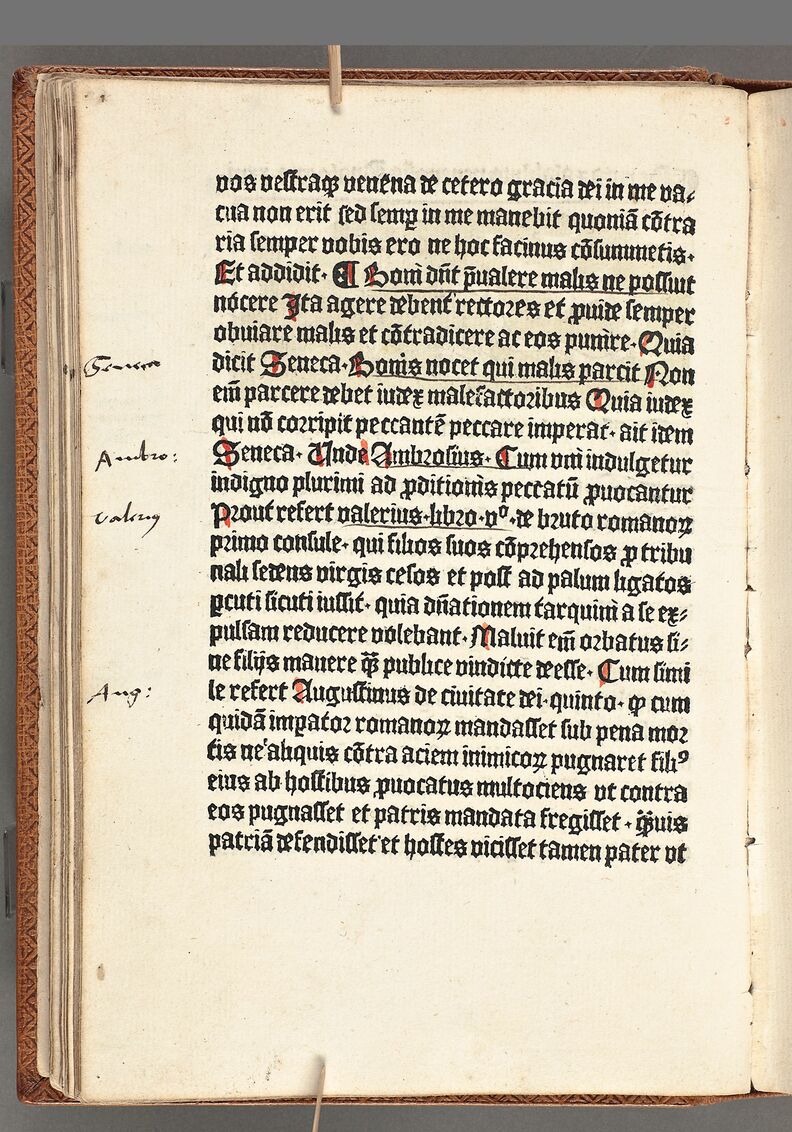 vos vestraqꝫ venena de cetero gracia dei in me va⸗
cua non erit sed semꝑ in me manebit quoniā cōtra
ria semper vobis ero ne hoc facinus cōsummetis·
Et addidit· ¶ Boni dn̄t p̄ualere malis ne possint
nocere Ita agere debent rectores et ꝓuide semper
obuiare malis et cōtradicere ac eos punire· Quia
Seneca
dicit Seneca· Bonis nocet qui malis parcit Non
em̄ parcere debet iudex malefactoribus Quia iudex
qui nō corripit peccantē peccare imperat· ait idem
Ambro:
Seneca· Unde Ambrosius· Cum vni indulgetur
indigno plurimi ad ꝓditionis peccatū ꝓuocantur
Valeriꝰ
Prout refert valerius·libro·vº·de bruto romanoꝝ
primo consule· qui filios suos cōprehensos ꝓ tribu
nali sedens virgis cesos et post ad palum ligatos
ꝑcuti sicuti iussit· quia dn̄ationem tarquini a se ex⸗
pulsam reducere volebant· Maluit em̄ orbatus si⸗
ne filijs manere qꝫ̄ publice vindicte deesse· Cum simi
Aug:
le refert Augustinus de ciuitate dei·quinto· ꝙ cum
quidā impator romanoꝝ mandasset sub pena mor
tis ne aliquis cōtra aciem inimicoꝝ pugnaret filiꝰ
eius ab hostibus ꝓuocatus multociens vt contra
eos pugnasset et patris mandata fregisset · qꝫ̄uis
patriā defendisset et hostes vicisset tamen pater vt